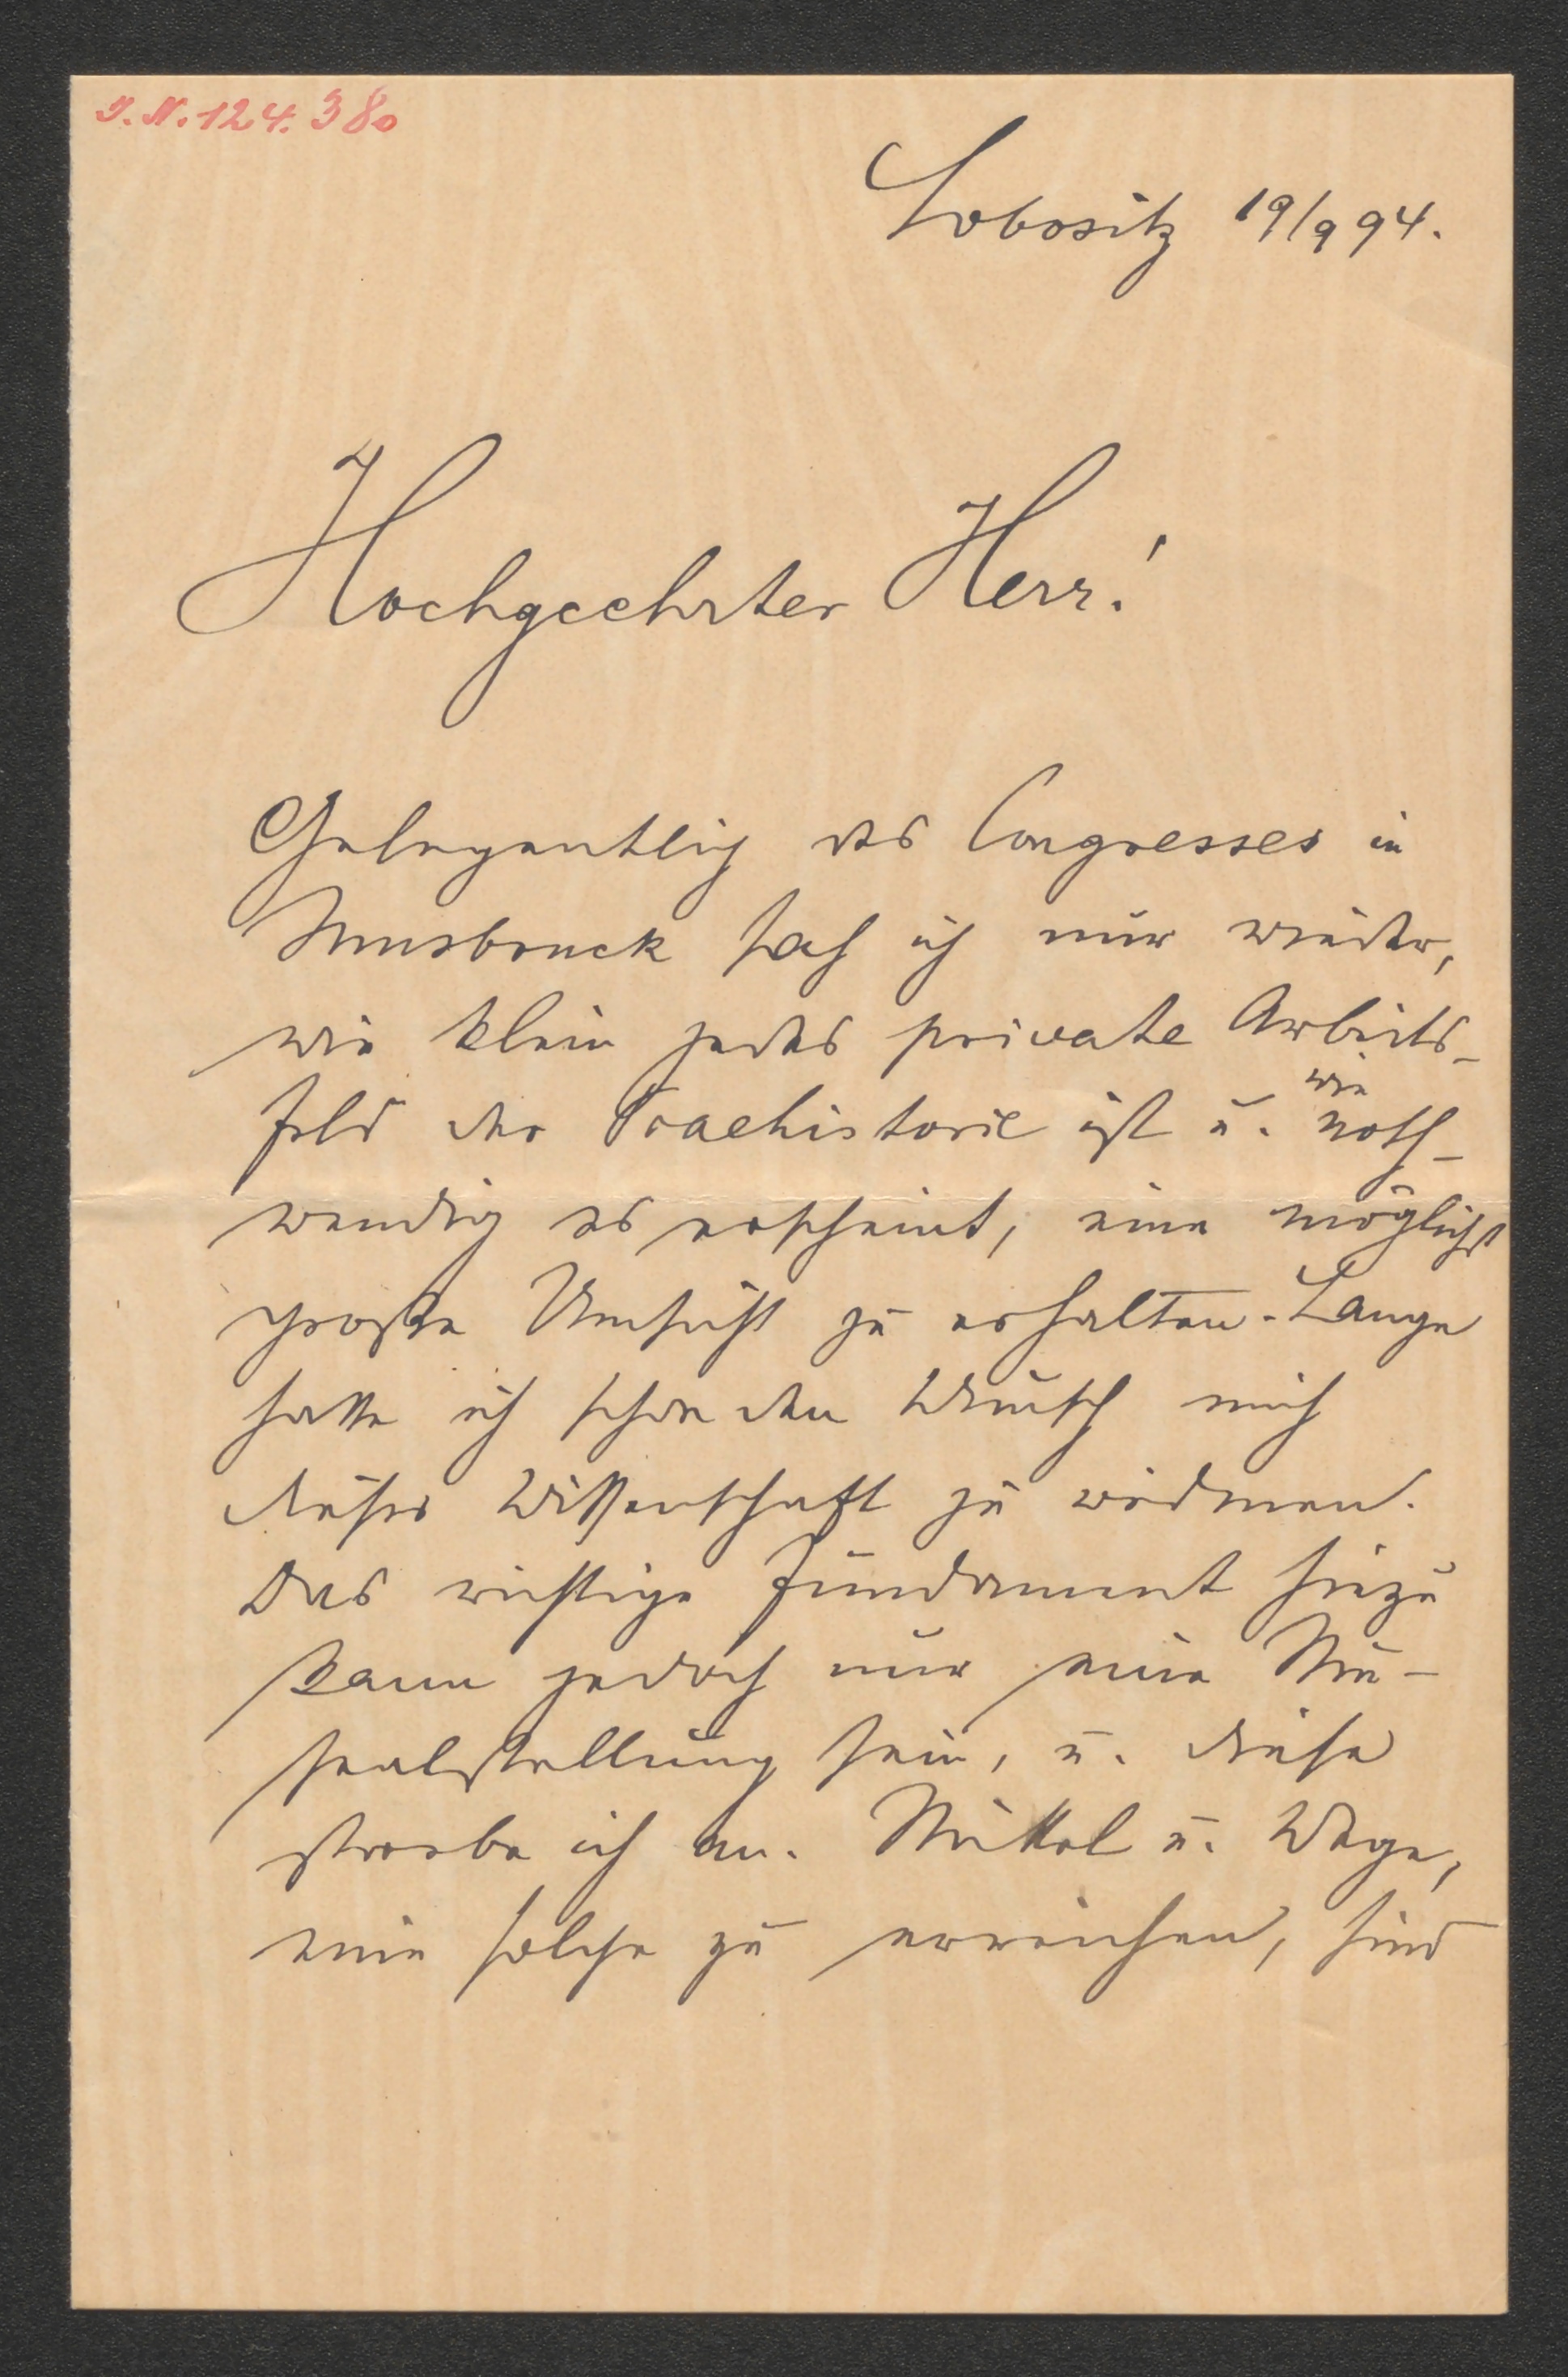 I. N. 124.380
Lobositz 19/9 94.
Hochgeehrter Herr!
Gelegentlich des Congresses in
Innsbruck sah ich nur wieder,
wie klein jedes private Arbeits-
feld der Praehistorie ist u. wie noth-
wendig es erscheint, eine möglichst
große Umsicht zu erhalten. Lange
hatte ich schon den Wunsch mich
dieser Wissenschaft zu widmen.
Das richtige Fundament hiezu
kann jedoch nur eine Mu-
sealstellung sein, u. diese
strebe ich an. Mittel u. Wege,
eine solche zu erreichen, sind